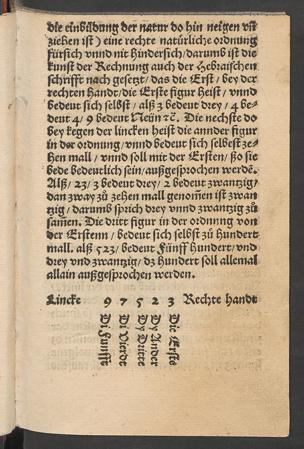 die einbildung der natur do hin neigen vñ
ziehen ist) eine rechte natürliche ordnung
fürsich vnnd nit hindersich/darumb ist die
kunst der Rechnung auch der Hebraischen
schrifft nach gesetzt/das die Erst/bey der
rechten handt/die Erste figur heist/vnnd
bedeut sich selbst/alß 3 bedeut drey/4 be-
deut 4/9 bedeut Neün ⁊c. Die nechste do
bey kegen der lincken heist die annder figur
in der ordnung/vnnd bedeut sich selbest ze-
hen mall/vnnd soll mit der Ersten/ßo sie
bede bedeutlich sein/außgesprochen werdē.
Alß/23/3 bedeut drey/2 bedeut zwantzig/
dan zway zů zehen mall genomen ist zwan
tzig/darumb sprich drey vnnd zwantzig zů
samen. Die drit figur in der ordnung von
der Erstenn/bedeut sich selbst zů hundert
mall. alß 523/bedeut Fünff hundert/vnd
drey vnd zwantzig/dz hundert soll allemal
allain außgesprochen werden.
Lincke 9 7 5 2 3 Rechte handt
Di Funfft
Di Vierdt
Dy Dritte
Dy Ander
Die Erste